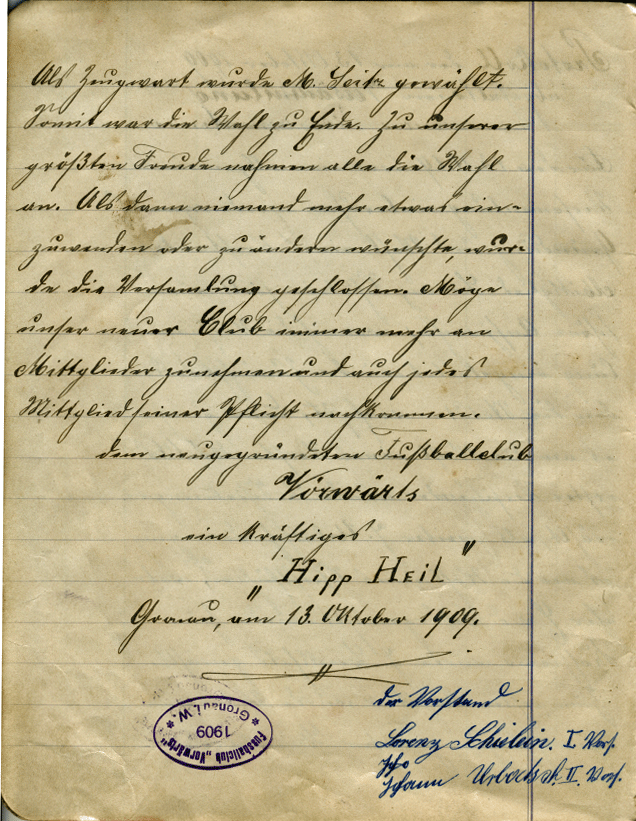 Als Zeugwart wurde M. Seitz gewählt.
Somit war die Wahl zu Ende. Zu unserer
größten Freude nahmen alle die Wahl
an. Als dann niemand mehr etwas ein-
zuwenden oder zu ändern wünschte, wur-
de die Versamlung geschlossen. Möge
unser neuer Club immer mehr an
Mittglieder zunehmen und auch jedes
Mittglied seiner Pflicht nachkommen.
dem neugegründeten Fußballclub
Vorwärts
ein kräftiges
„Hipp Heil"
Gronau, am 13. Oktober 1909.
der Vorstand
Lorenz Schielein. I Vors.
Johann II. Vors.
Fussballclub „Vorwärts"
1909
* Gronau i. W. *